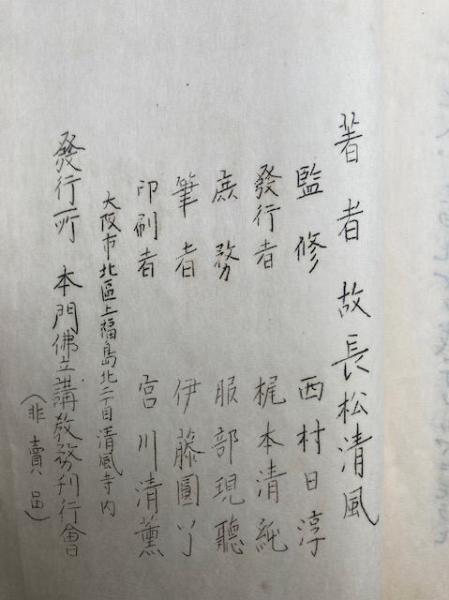 著者 故長松清風
監修 西村日淳
発行者 梶本清純
庶務 服部現聽
筆者 伊藤圓了
印刷者 宮川清薫
大阪市北區上福島北二丁目清風寺内
發行所 本門佛立講教務刊行會
（非賣品）